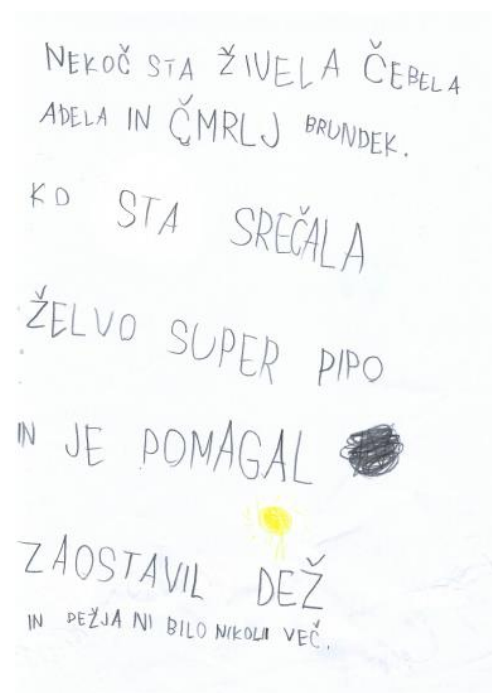 NEKOČ STA ŽIVELA ČEBELA
ADELA IN ČMRLJ BRUNDEK.
KO STA SREČALA
ŽELVO SUPER PIPO
IN JE POMAGAL
ZAOSTAVIL DEŽ
IN DEŽJA NI BILO NIKOLI VEČ.